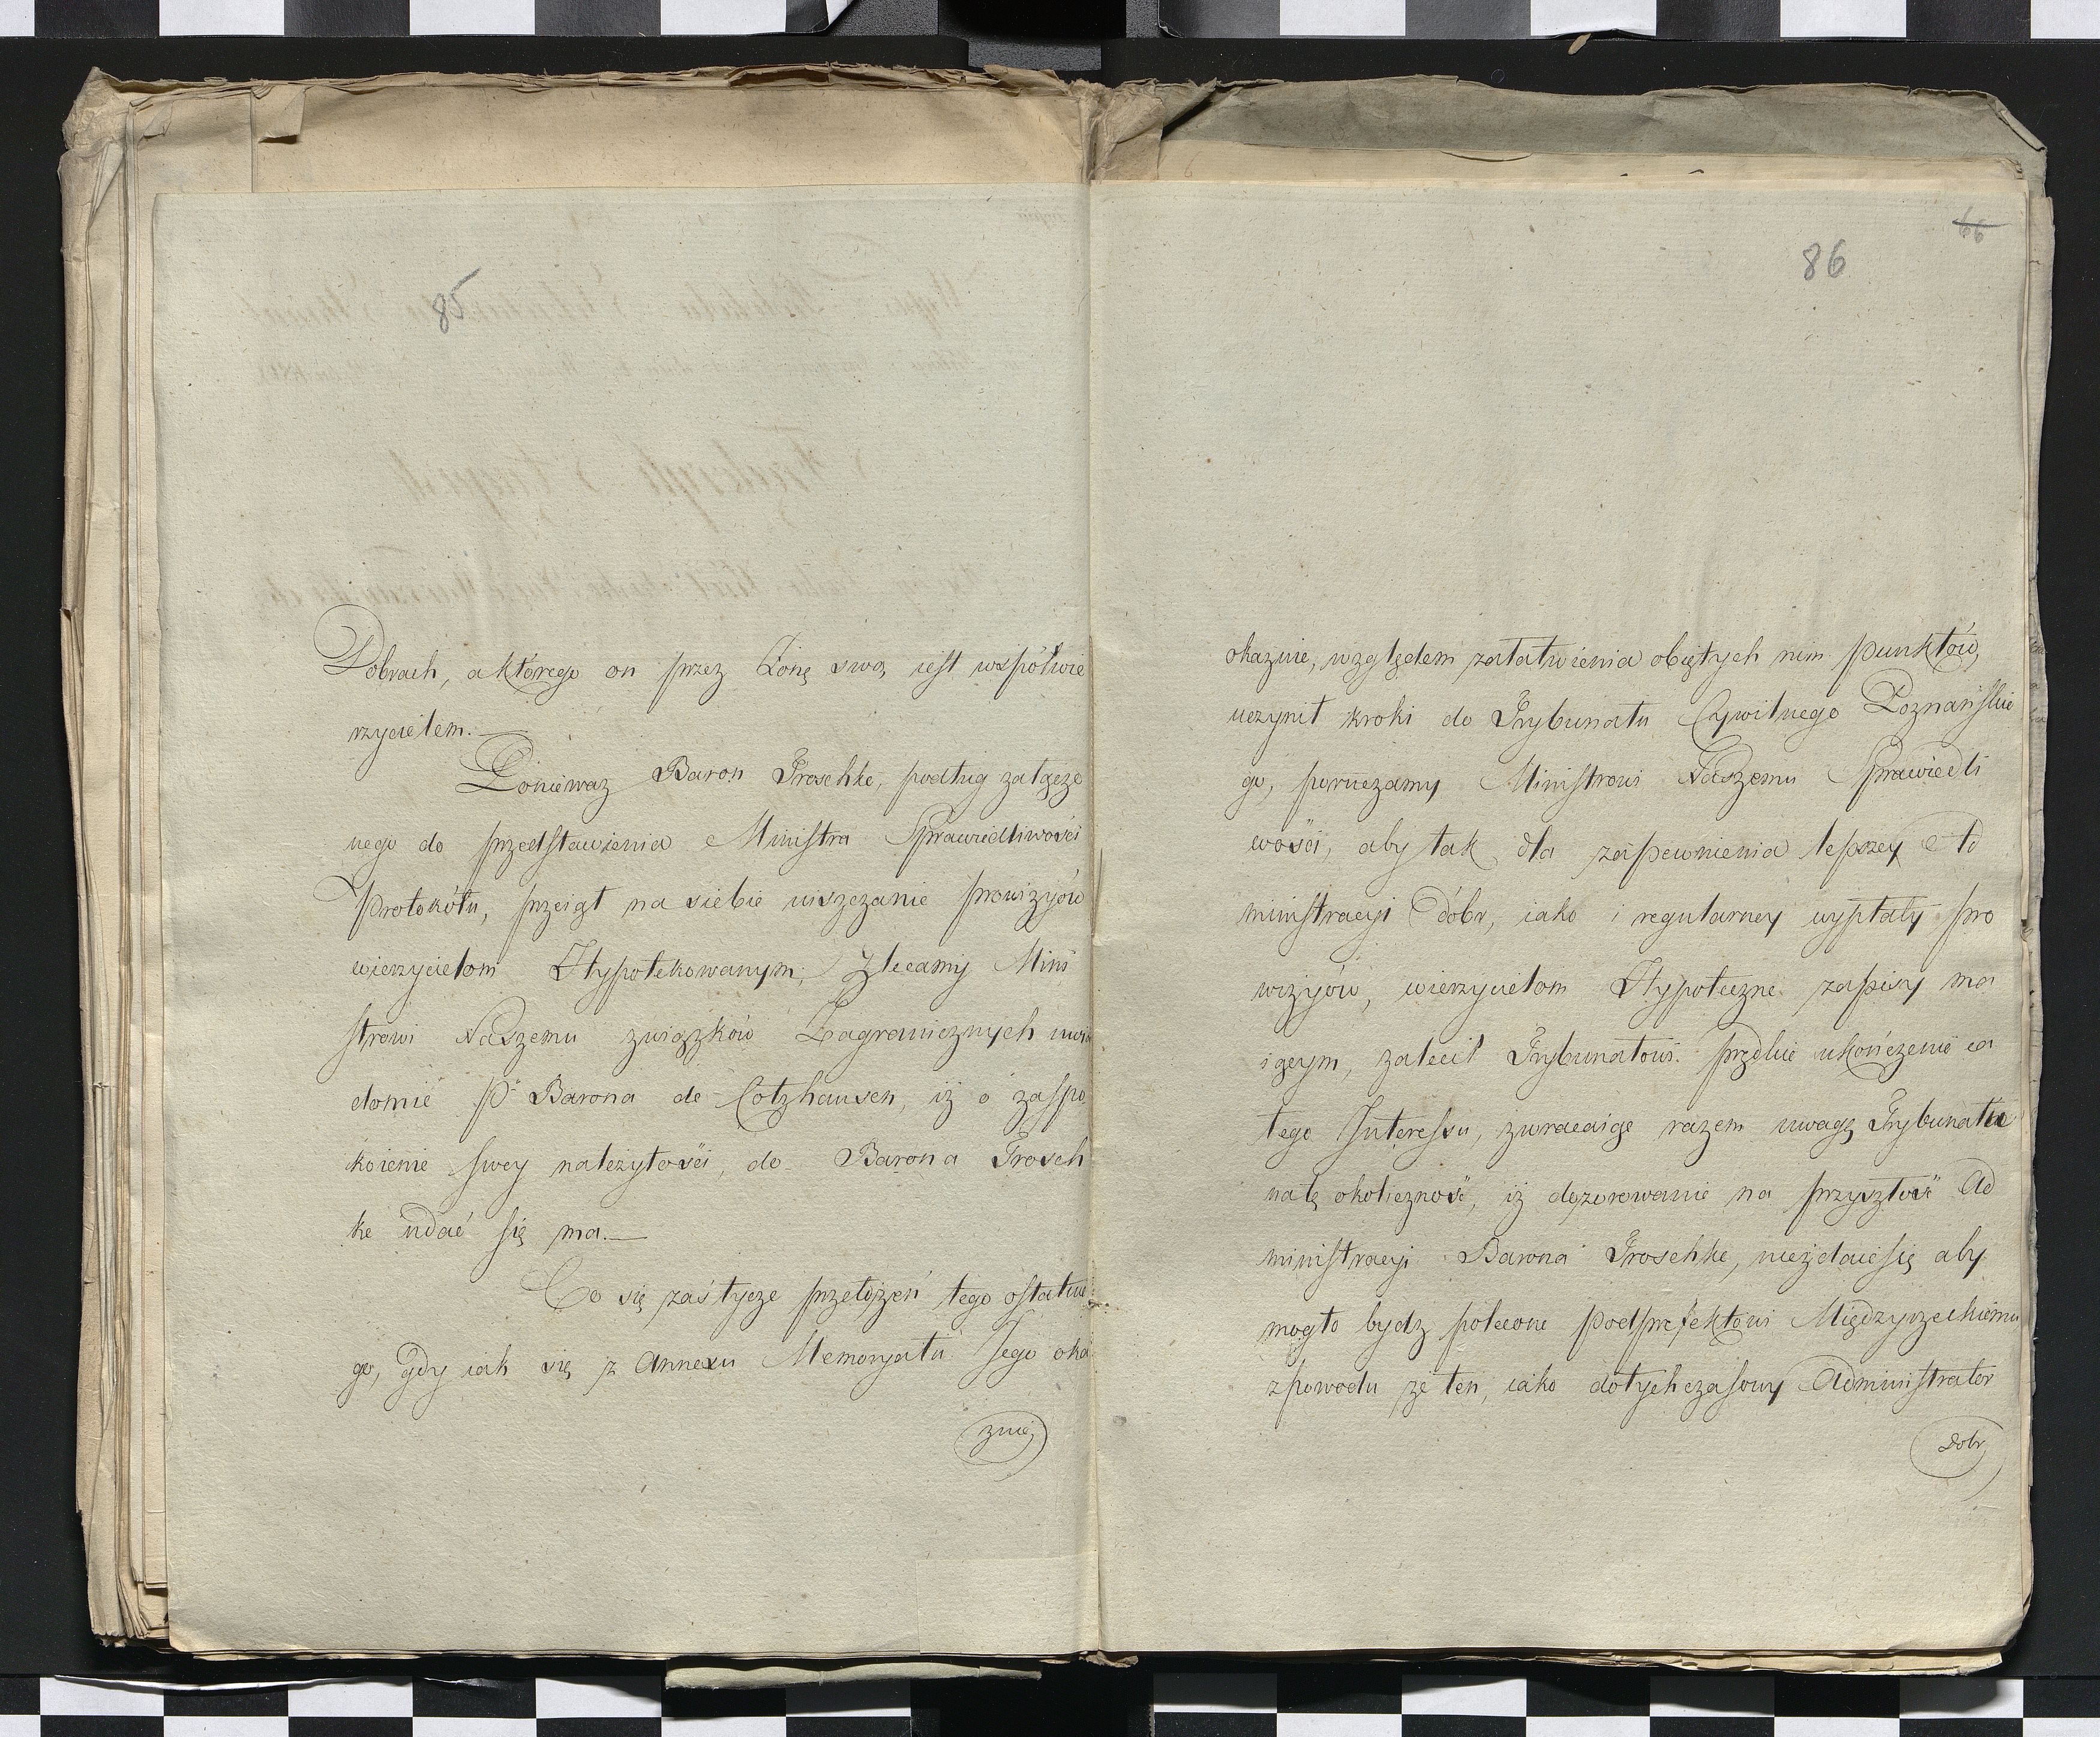 85
Dobrach, a którego on przez Żonę swą iest współwie
rzycielem.
Ponieważ Baron Troschke, podług załączo
nego do przedstawienia Ministra Sprawiedliwości
Protokółu, przeiął na siebie uiszczanie prowizyów
wierzycielom Hypotekowanym; Zlecamy Mini
strowi Naszemu związków Zagranicznych uwia
domić Pa Barona de Cotzhausen, iż o zaspo
koienie swey należytości, do Barona Trosch
ke udać się ma.—
Co się zaś tycze przełożeń tego ostatnie
go, gdy iak się z Annexu Memoryału Jego oka
znie
66
86
okaznie, względem załatwienia obiętych nim punktów,
uczynił kroki do Trybunału Cywilnego Poznańskie
go, poruczamy Ministrowi Naszemu Sprawiedli
wości, aby tak dla zapewnienia lepszey Ad
ministracyi Dóbr, iako i regularney wypłaty pro
wizyów, wierzycielom Hypoteczne zapisy ma
iącym, zalecił Trybunałowi prędkie ukończenie ca
tego Interessu, zwracaiąc razem uwagę Trybunału
na tę okoliczność, iż dozorowanie na przyszłość Ad
ministracyi Barona Troschke, niezdaie się aby
mogło bydz polecone Podprefektowi Międzyrzeckiemu
z powodu że ten, iako dotychczasowy Administrator
Dobr